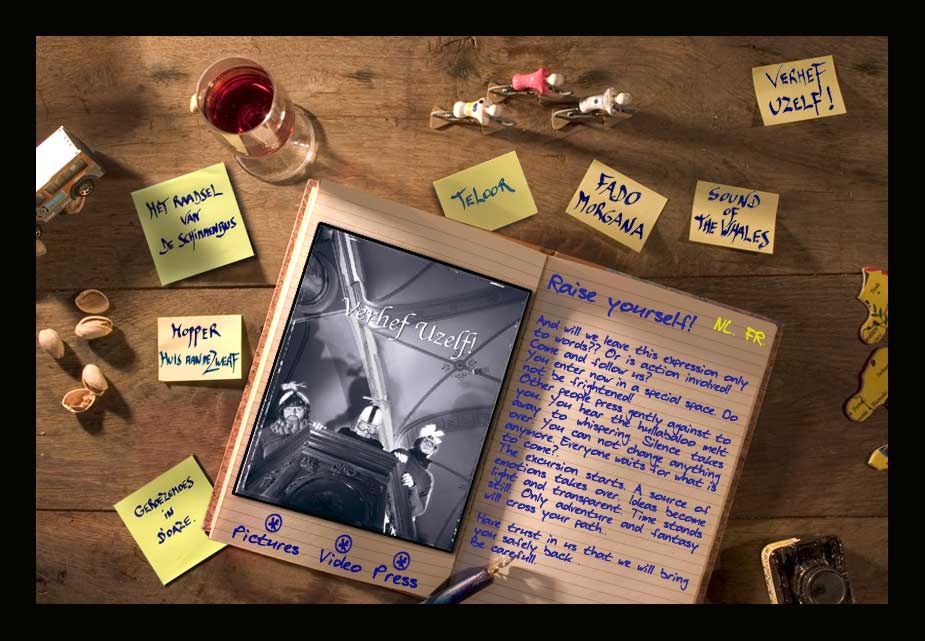 VERHEF
UZELF!
TELOOR
FADO
MORGANA
SOUND
OF
THE WHALES
HET RAADSEL
VAN
DE SCHIMMENBUS
HOPPER
HUIS AAN DE ZWERF
GEROEZEMOES
IN
D'OAZE.
Verhef Uzelf!
Pictures
Video
Press
Raise yourself!
NL. FR.
And will we leave this expression only
to words?? Or is action involved!
Come and follow us?
You enter now in a special space. Do
not be frightened!
Other people press gently against to
you. You hear the hullabaloo melt
away to whispering. Silence takes
over. You can not change anything
anymore. Everyone waits for what is
to come?
The excursion starts. A source of
emotions takes over. Ideas become
light and transparent. Time stands
still. Only adventure and fantasy
will cross your path..
Have trust in us that we will bring
you safely back .
Be carefull.